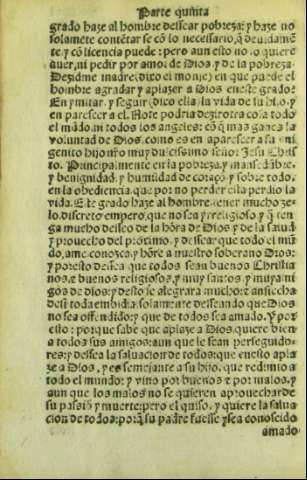 Parte quinta
grado haze al hombre dessear pobreza: y haze no
solamēte contētar se cō lo necessario, q̄ deuidamē
te, y cō licencia puede: pero aun esto no lo querer
auer, ni pedir por amor de Dios, y de la pobreza
Dezidme madre (dixo el monje) en que puede el
hombre agradar y aplazer a Dios en este grado?
En ymitar, y seguir (dixo ella) la vida de su hijo, y
en parescer a el. No te podria dezir otra cosa todo
el mūdo, ni todos los angeles: cō q̄ mas ganes la
voluntad de Dios, como es en aparescer a su vni
genito hijo nro muy dulcissimo señor Jesu Christ
to. Principalmente en la pobreza, y mansedūbre,
y benignidad, y humildad de coraçō, y sobre todo
en la obediencia, que por no perder esta perdio la
vida. Este grado haze al hombre tener mucho ze
lo, discreto empero, que no sea yreligioso, y q̄ ten
ga mucho desseo de la hōra de Dios, y de la salud
y prouecho del proximo, y dessear que todo el mū
do, ame, conozca, y hōre a nuestro soberano Dios:
y por esto dessea que todos sean buenos Christia
nos, e buenos religiosos, y muy sanctos, y muy ami
gos de dios: y desto se alegrara mucho: e ansi echa
de si toda embidia: solamente desseando que Dios
no sea offendido: y que de todos sea amado. Y por
esto: porque sabe que aplaze a Dios, quiere bien
a todos sus amigos: aun que le sean perseguido-
res: y dessea la saluacion de todos: que en esto apla
ze a Dios, y es semejante a su hijo, que redimio a
todo el mundo: y vino por buenos e por malos, y
aun que los malos no se quieren aprouechar de
su passiō y muerte: pero el quiso, y quiere la salua
cion de todos: por q̄ su padre fuesse y sea conoscido
amado